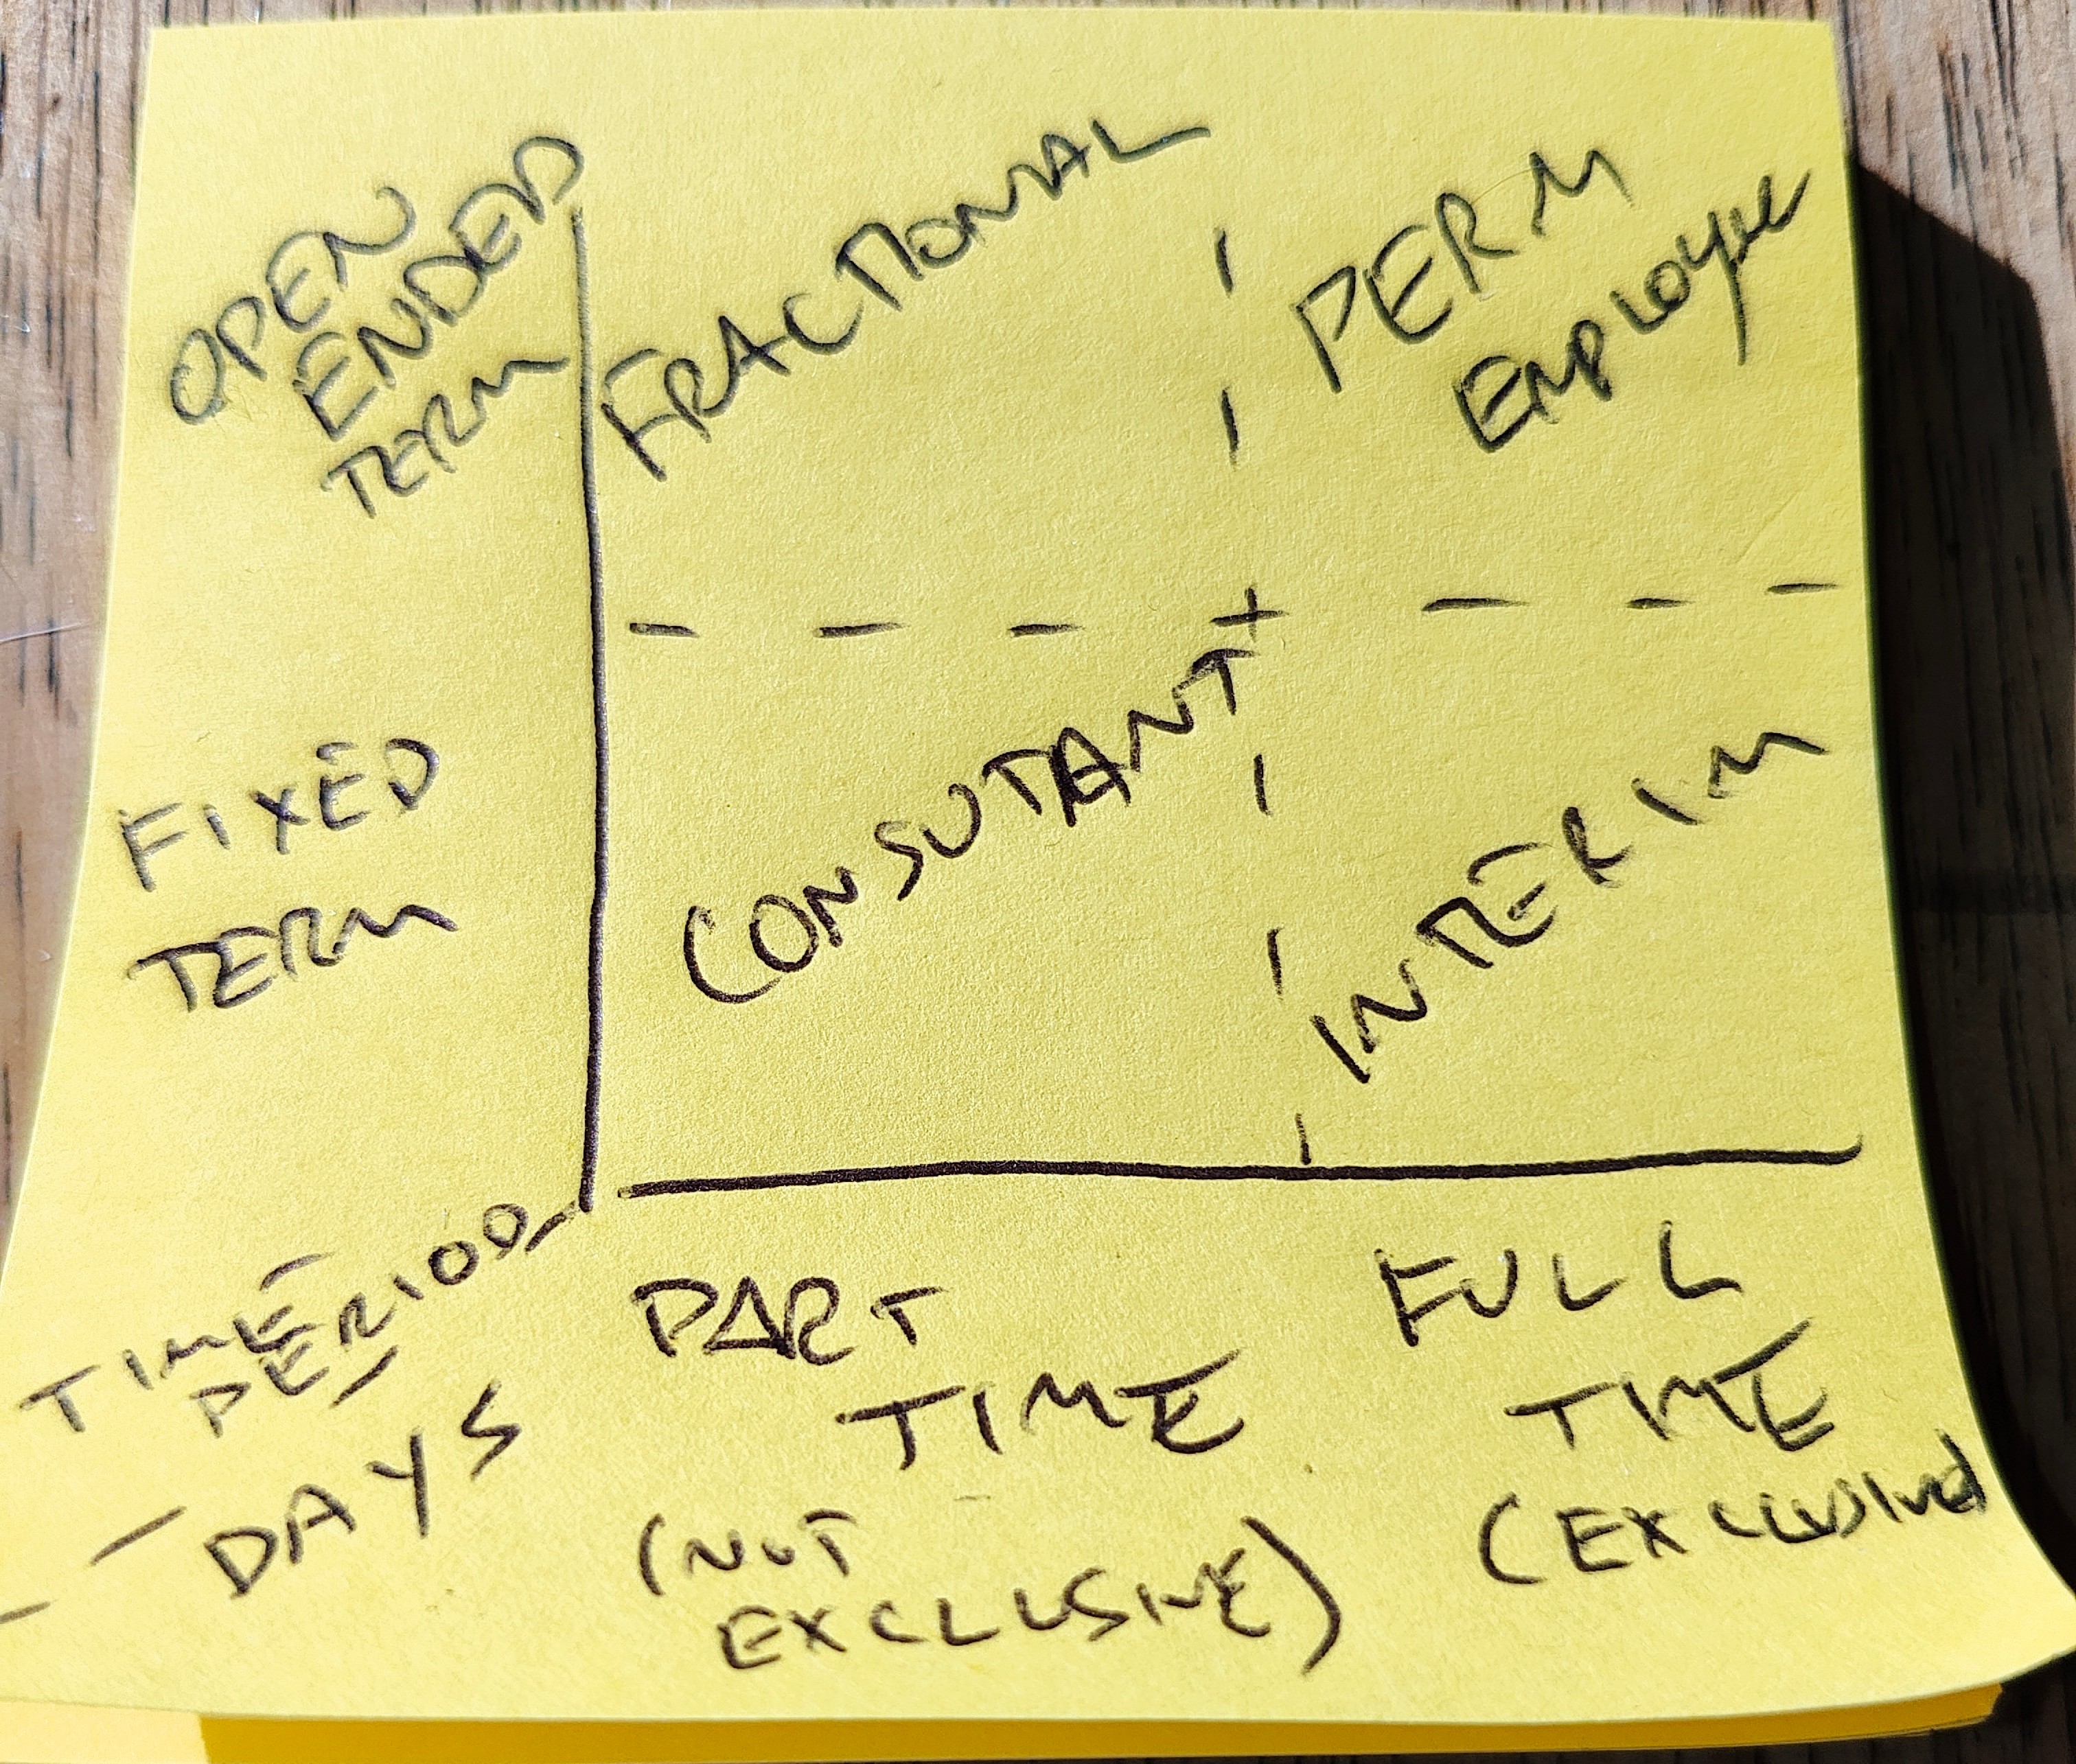 OPEN
ENDED
TERM
FRACTIONAL
PERM
EMPLOYEE
FIXED
TERM
CONSUTANT
INTERIM
TIME
PERIOD
DAYS
PART
TIME
(NOT
EXCLUSIVE)
FULL
TIME
(EXCLUSIVE)